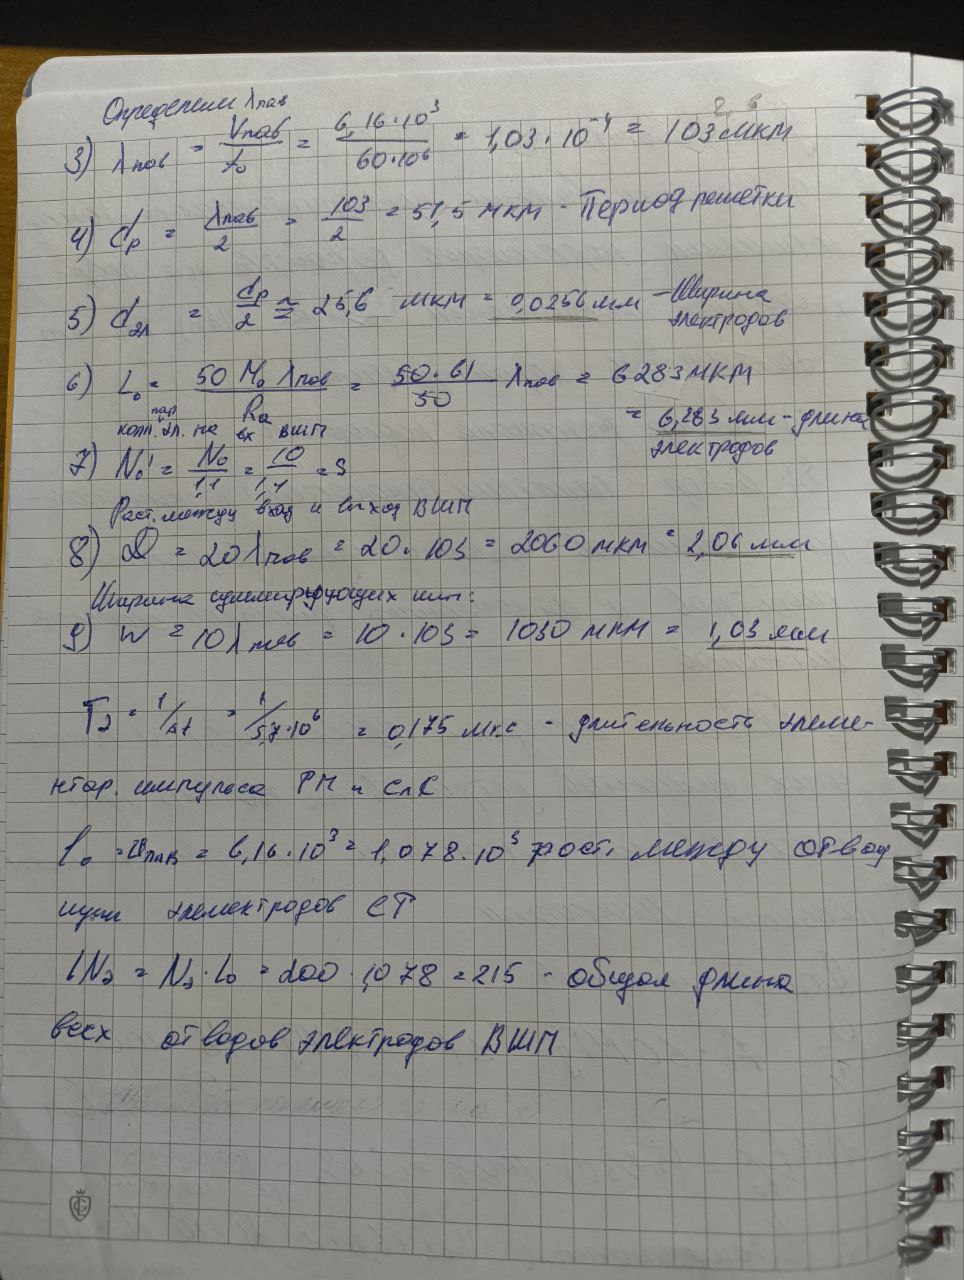 Определим λпав
3) λпов = Vпав/f₀ = 6,16·10³/60·10⁶ = 1,03·10⁻⁴ = 103 мкм
4) dр = λпав/2 = 103/2 = 51,5 мкм - Период решетки
5) dэл = dр/2 ≈ 25,6 мкм = 0,0256 мм - Ширина
электродов
6) L₀ = 50 M₀ λпов/Ra = 50·61/50 λпов = 6283 мкм
= 6,283 мм - длина
электродов
пар
колл. эл. на вх ВШП
7) N₀' = N₀/1,1 = 10/1,1 = 9
Раст. между вход и выход ВШП
8) D = 20 λпов = 20·103 = 2060 мкм = 2,06 мм
Ширина суммирующих шин:
9) W = 10 λпов = 10·103 = 1030 мкм = 1,03 мм
Tэ = 1/Δf = 1/5,7·10⁶ = 0,175 мкс - длительность элеме-
нтар. импульса РМ и СпС
l₀ = υпав = 6,16·10³ = 1,078·10³ раст. между отвод
ящими электродов СТ
lNэ = Nэ·L₀ = 200·1,078 = 215 - общая длина
всех отводов электродов ВШП